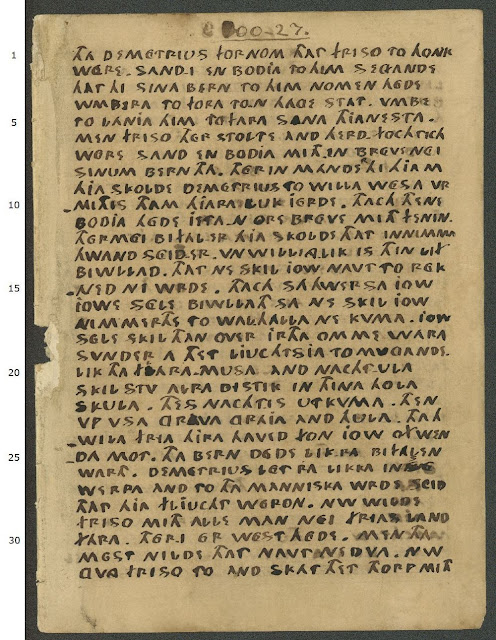 C 00-27.
1 THA DEMETRIUS FORNOM THAT FRISO TO HONK
WERE. SAND.I EN BODIA TO HIM SEGANDE
THAT HI SINA BERN TO HIM NOMEN HEDE
UMBE RA TO FORA TO.N HAGE STAT. UMBE
5 TO LANIA HIM TO FARA SINA THIANESTA.
MEN FRISO THER STOLTE AND HERD.FOCHTICH
WERE SAND EN BODIA MITH.EN BREVE NEI
SINUM BERN THA. THERIN MANDE HI HIAM
HIA SKOLDE DEMETRIUS TO WILLA WESA UR
10 MITHIS THAM HIARA LUK IERDE. THACH THENE
BODIA HEDE IETA.N ORE BREVE MITH FENIN.
THERMEI BIFALER HIA SKOLDE THAT INNIMMA
HWAND SEID.ER. UNWILLALIK IS THIN LIF
BIWLLAD. THAT NE SKIL IOW NAVT TO REK
15 NED NI WRDE. THACH SAHWERSA IOW
IOWE SELE BIWLLATH SA NE SKIL IOW
NIMMERTHE TO WALHALLA NE KUMA. IOW
SELE SKIL THAN OVER IRTHA OMME WARA
SUNDER A THET LIUCHT SIA TO MUGANDE.
20 LIK THA FLARA.MUSA AND NACHT.ULA
SKILSTU ALRA DISTIK IN THINA HOLA
SKULA. THES NACHTIS UTKUMA. THEN
UP USA GRAVA GRAIA AND HULA. THAH
WILA FRIA HIRA HAVED FON IOW OFWEN
25 DA MOT. THA BERN DEDE LIK RA BIFALEN
WARTH. DEMETRIUS LET RA LIKKA IN SE
WERPA AND TO THA MANNISKA WRDE SEID
THAT HIA FLIUCHT WERON. NW WILDE
FRISO MITH ALLE MAN NEI FRIAS LAND
30 FARA. THER.I ER WEST HEDE. MEN THA
MEST NILDE THAT NAVT NE DUA. NW
GUG FRISO TO AND SKAT THET THORP MITH